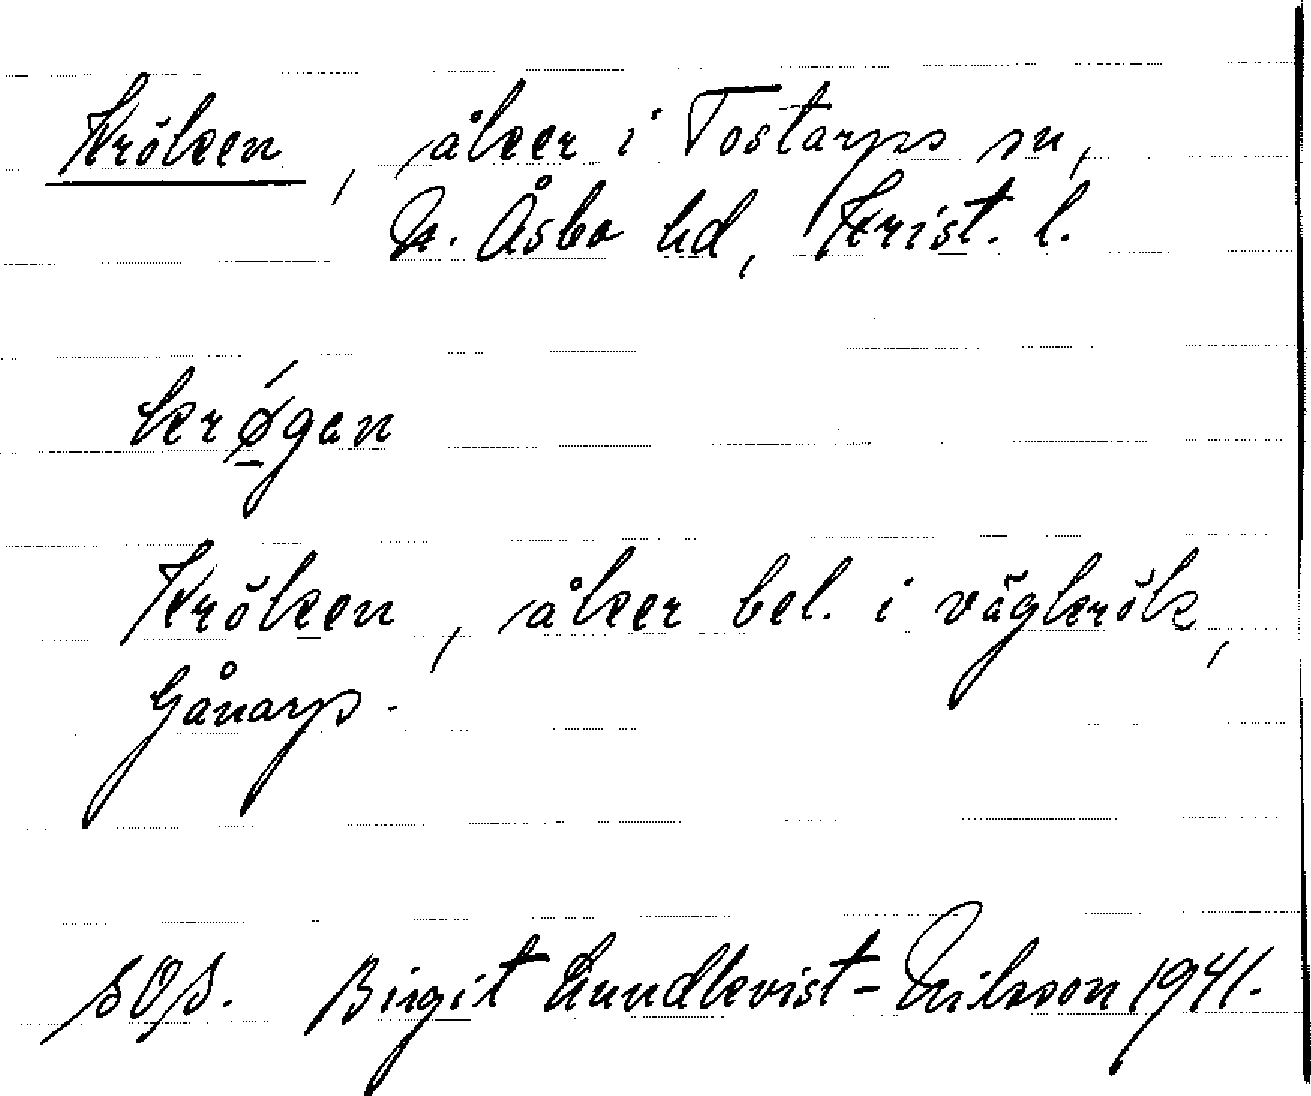 Kröken, åker i Tostarps sn,
N. Åsbo hd, Krist. l.
krǿ̱gan
Kröken, åker bel. i vägkrök,
Gånarp.
SOS. Birgit Lundkvist-Nilsson 1941.